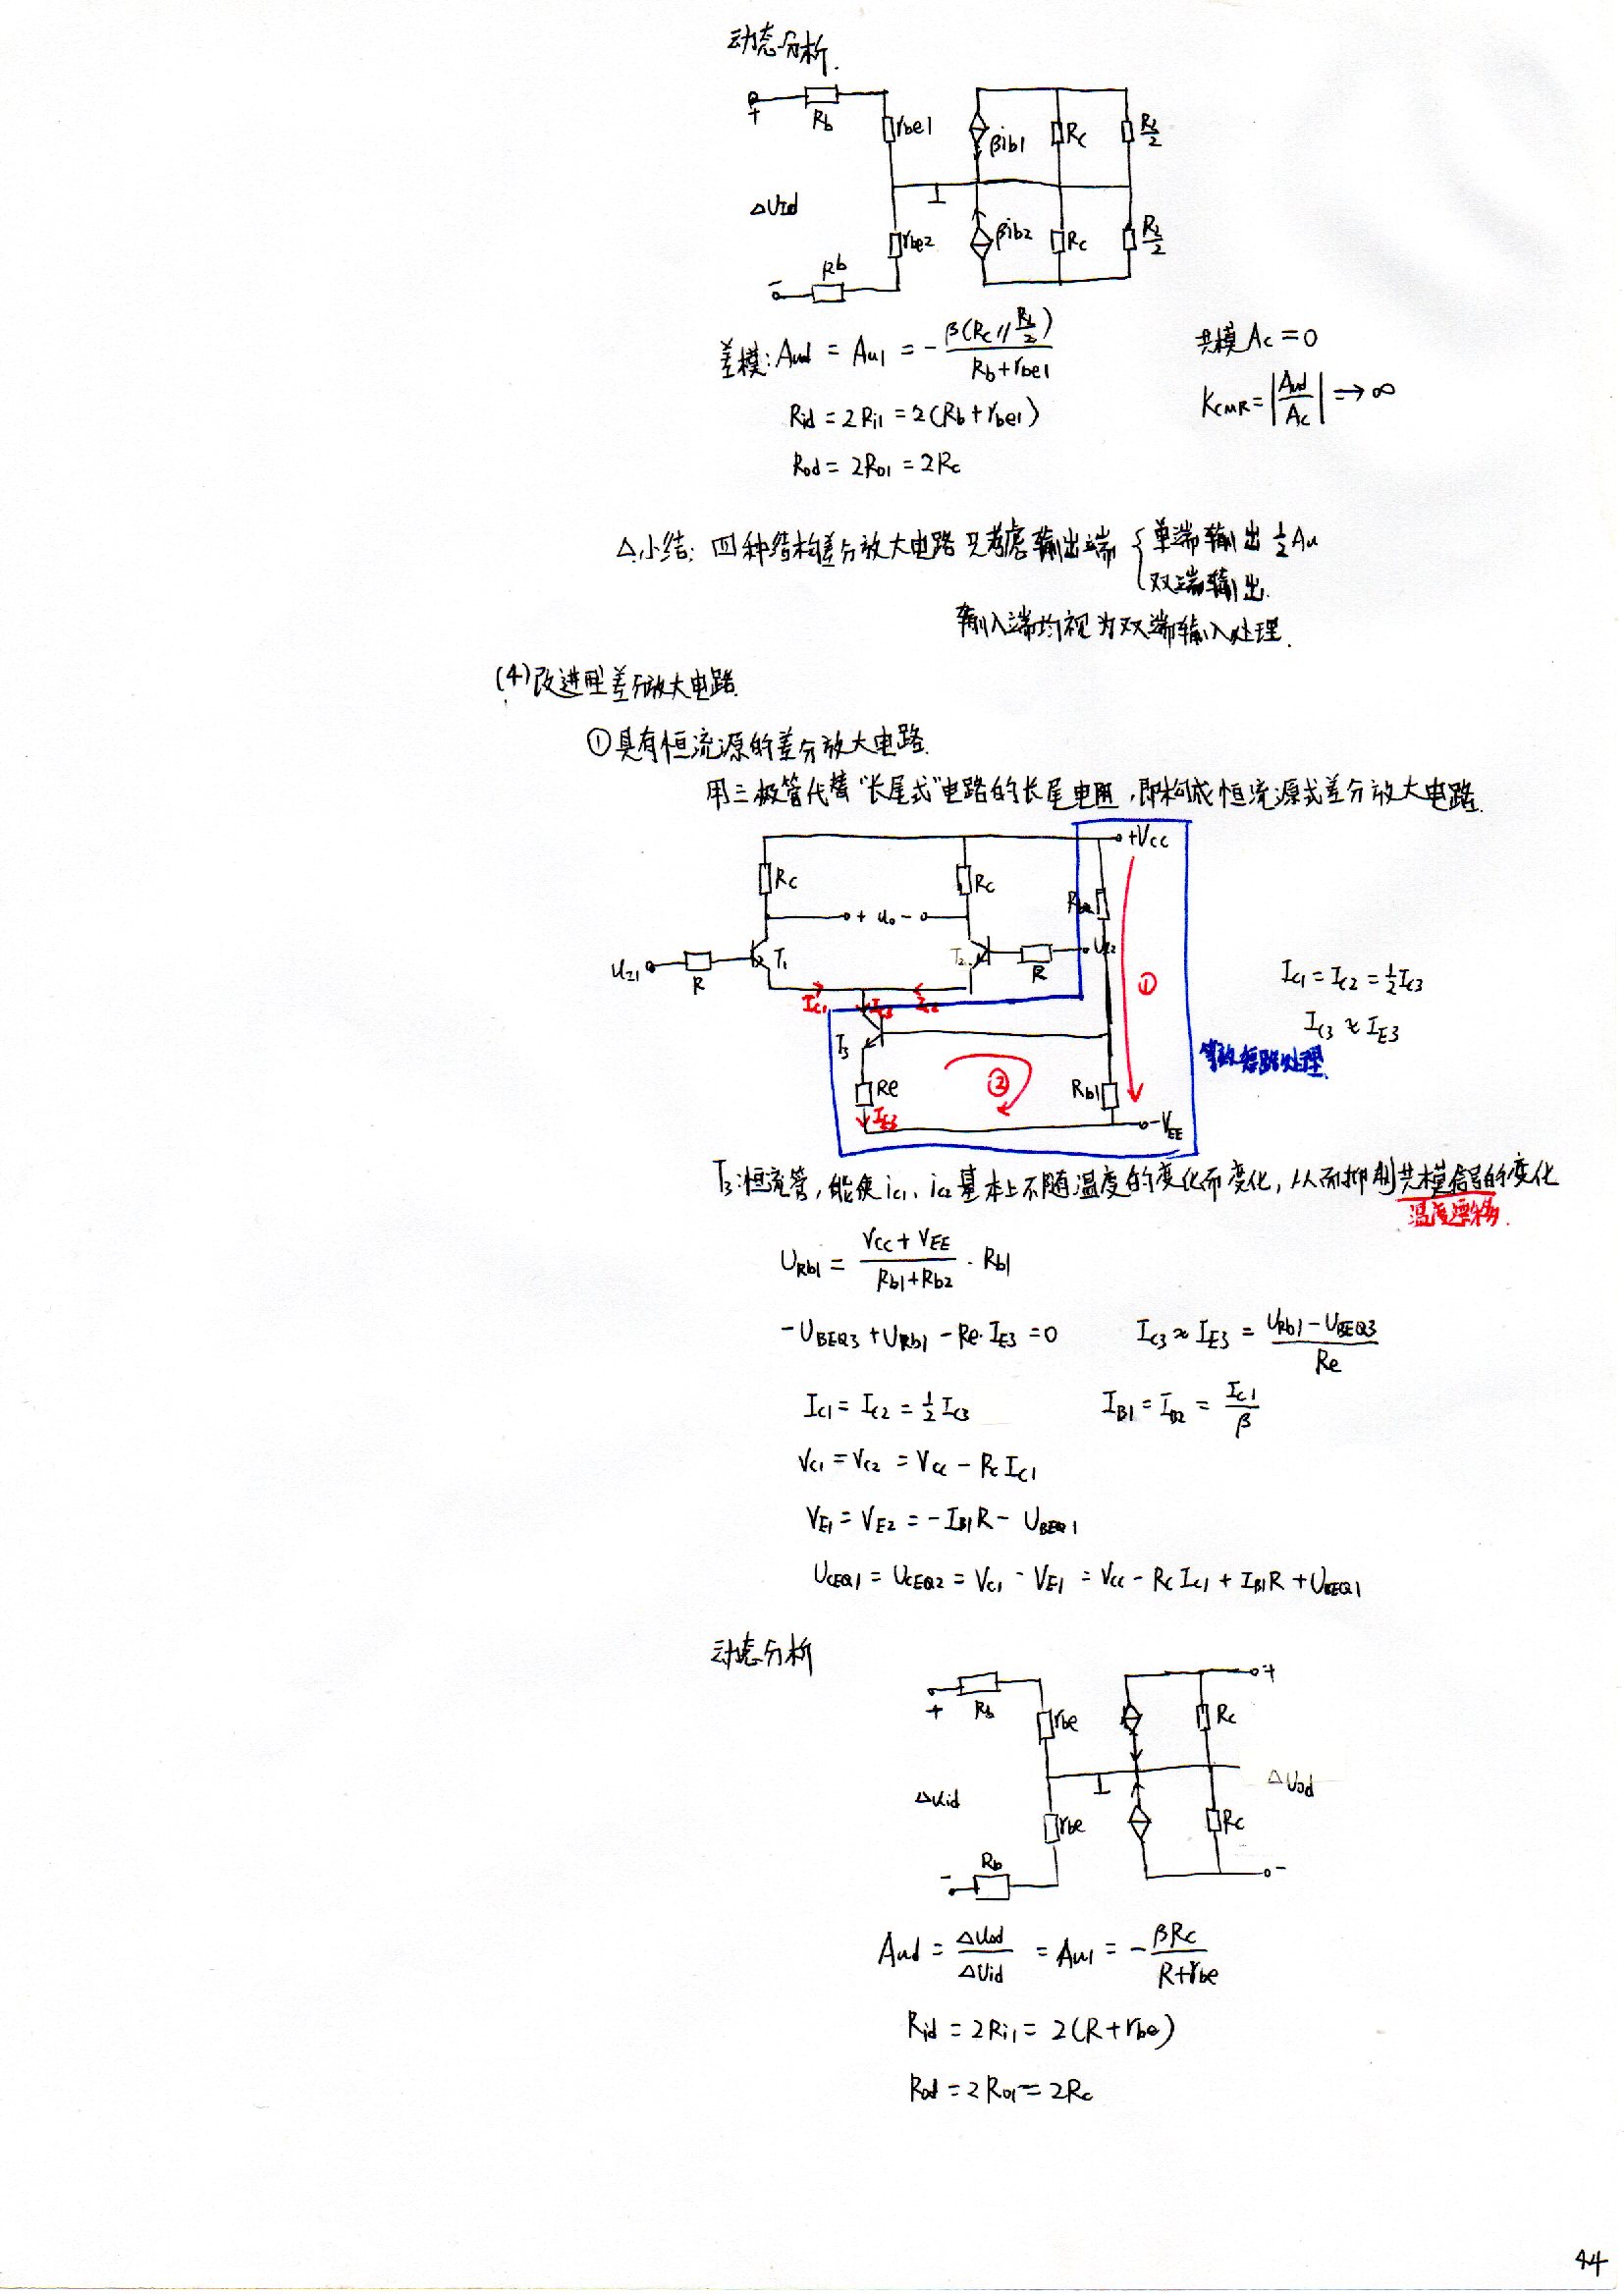 动态分析.
+ Rb rbe1 βib1 Rc RL/2
ΔUId
- Rb rbe2 βib2 Rc RL/2
差模: Aud = Au1 = -β(Rc // RL/2)/(Rb+rbe1)
共模 Ac = 0
Rid = 2Ri1 = 2(Rb+rbe1)
KCMR = |Aud/Ac| → ∞
Rod = 2Ro1 = 2Rc
△小结: 四种结构差分放大电路只考虑输出端 { 单端输出 ½Au
双端输出.
输入端均视为双端输入处理.
(4)改进型差分放大电路.
①具有恒流源的差分放大电路.
用三极管代替"长尾式"电路的长尾电阻,即构成恒流源式差分放大电路.
+VCC
Rc Rc Rb2
+ uo -
UI1 R T1 T2 R UI2
IC1 IC3 IC2 ①
IC1 = IC2 = ½IC3
IC3 ≈ IE3
T3
等效短路处理
Re ② Rb1
IE3 -VEE
T3:恒流管,能使ic1、ic2基本上不随温度的变化而变化,从而抑制共模信号的变化
温度漂移.
URb1 = (VCC + VEE)/(Rb1+Rb2) · Rb1
-UBEQ3 + URb1 - Re·IE3 = 0 IC3 ≈ IE3 = (URb1 - UBEQ3)/Re
IC1 = IC2 = ½IC3 IB1 = IB2 = IC1/β
VC1 = VC2 = VCC - RcIC1
VE1 = VE2 = -IB1R - UBEQ1
UCEQ1 = UCEQ2 = VC1 - VE1 = VCC - RcIC1 + IB1R + UBEQ1
动态分析
+ Rb rbe Rc +
ΔUid ΔUod
- Rb rbe Rc -
Aud = ΔUod/ΔUid = Au1 = -βRc/(R+rbe)
Rid = 2Ri1 = 2(R+rbe)
Rod = 2Ro1 = 2Rc
44